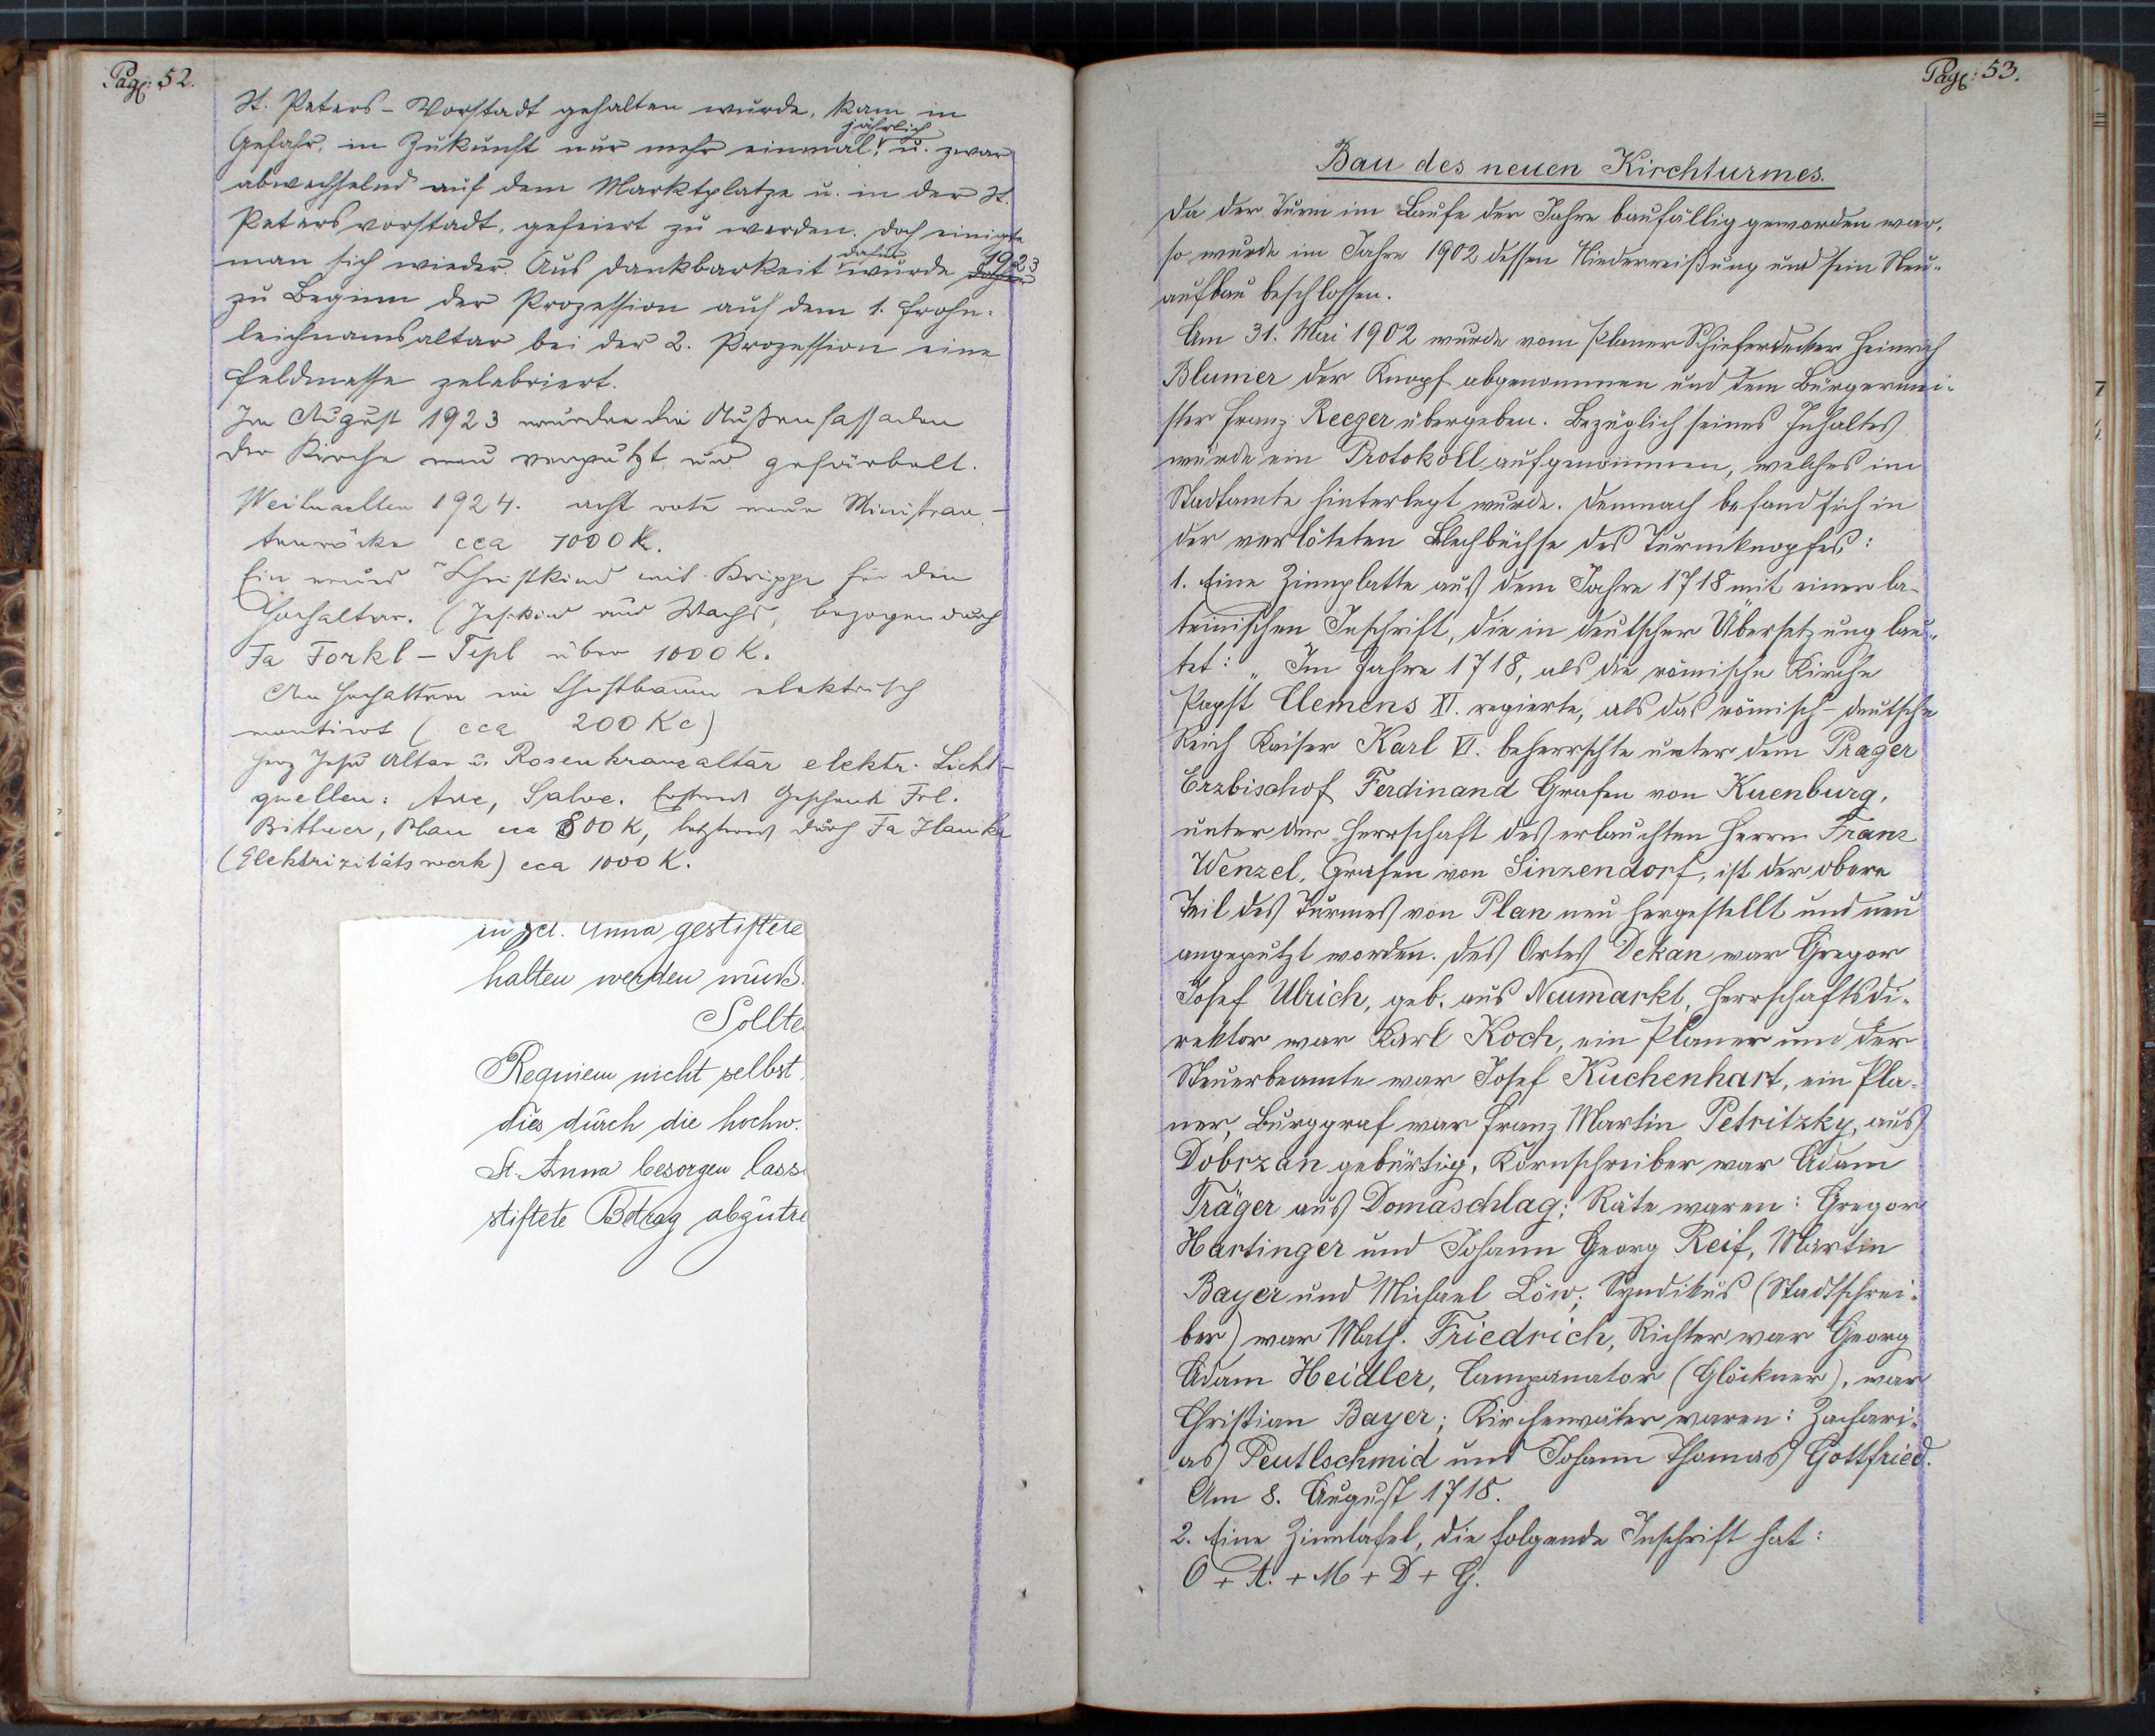 Pag: 52.
St. Peters-Vorstadt gehalten wurde, kam in
jährlich
Gefahr, in Zukunft nur mehr einmal, u. zwar
abwechselnd auf dem Marktplatze u. in der St.
Petersvorstadt, gefeiert zu werden. Doch einigte
dafür 1923
man sich wieder. Aus Dankbarkeit wurde
zu Beginn der Prozession auf dem 1. Frohn-
leichnamsaltar bei der 2. Prozession eine
Feldmesse zelebriert.
Im August 1923 wurden die Außenfassaden
der Kirche neu verputzt und gefärbelt.
Weihnachten 1924. acht rote neue Ministran-
tenröcke cca 1000 K.
Ein neues Christkind mit Krippe für den
Hochaltar. (Jeskind aus Wachs, bezogen durch
Fa Forkl-Tepl über 1000 K.
Am Hochaltare ein Christbaum elektrisch
montiert (cca 200 Kc)
Herz Jesu Altar u. Rosenkranzaltar elektr. Licht-
quellen: Ave, Salve. Ersteres Geschenk Frl.
Bittner, Plan cca 800 K, letzteres durch Fa Hanika
(Elektrizitätswerk) cca 1000 K.
in Sct. Anna gestiftete
halten werden muss.
Sollte
Requiem nicht selbst
dies durch die hochw.
St. Anna besorgen lass
stiftete Betrag abzutre
Pag: 53.
Bau des neuen Kirchturmes.
Da der Turm im Laufe der Jahre baufällig geworden war,
so wurde im Jahre 1902 dessen Niederreißung und sein Neu-
aufbau beschlossen.
Am 31. Mai 1902 wurde vom Planer Schieferdecker Heinrich
Blumer der Knopf abgenommen und dem Bürgermei-
ster Franz Reeger übergeben. Bezüglich seines Inhaltes
wurde ein Protokoll aufgenommen, welches im
Stadtamte hinterlegt wurde. Demnach befand sich in
der verlöteten Blechbüchse des Turmknopfes:
1. Eine Zinnplatte aus dem Jahre 1718 mit einer la-
teinischen Inschrift, die in deutscher Übersetzung lau-
tet: „Im Jahre 1718, als die römische Kirche
Papst Clemens XI. regierte, als das römisch-deutsche
Reich Kaiser Karl VI. beherrschte unter dem Prager
Erzbischof Ferdinand Grafen von Kuenburg,
unter der Herrschaft des erlauchten Herrn Franz
Wenzel, Grafen von Sinzendorf, ist der obere
Teil des Turmes von Plan neu hergestellt und neu
angeputzt worden. Des Ortes Dekan war Gregor
Josef Ulrich, geb. aus Neumarkt, Herrschaftsdi-
rektor war Karl Koch, ein Planer und der
Steuerbeamte war Josef Kuchenhart, ein Pla-
ner, Burggraf war Franz Martin Petritzky, aus
Dobrzan gebürtig, Kornschreiber war Adam
Träger aus Domaschlag; Räte waren: Gregor
Hartinger und Johann Georg Reif, Martin
Bayer und Michael Löw; Syndikus (Stadtschrei-
ber) war Math. Friedrich, Richter war Georg
Adam Heidler, Campanator (Glöckner), war
Christian Bayer; Kirchenväter waren: Zachari-
as Peutlschmid und Johann Thomas Gottfried.
Am 8. August 1718.
2. Eine Zinntafel, die folgende Inschrift hat:
O + A. + M + D + G.